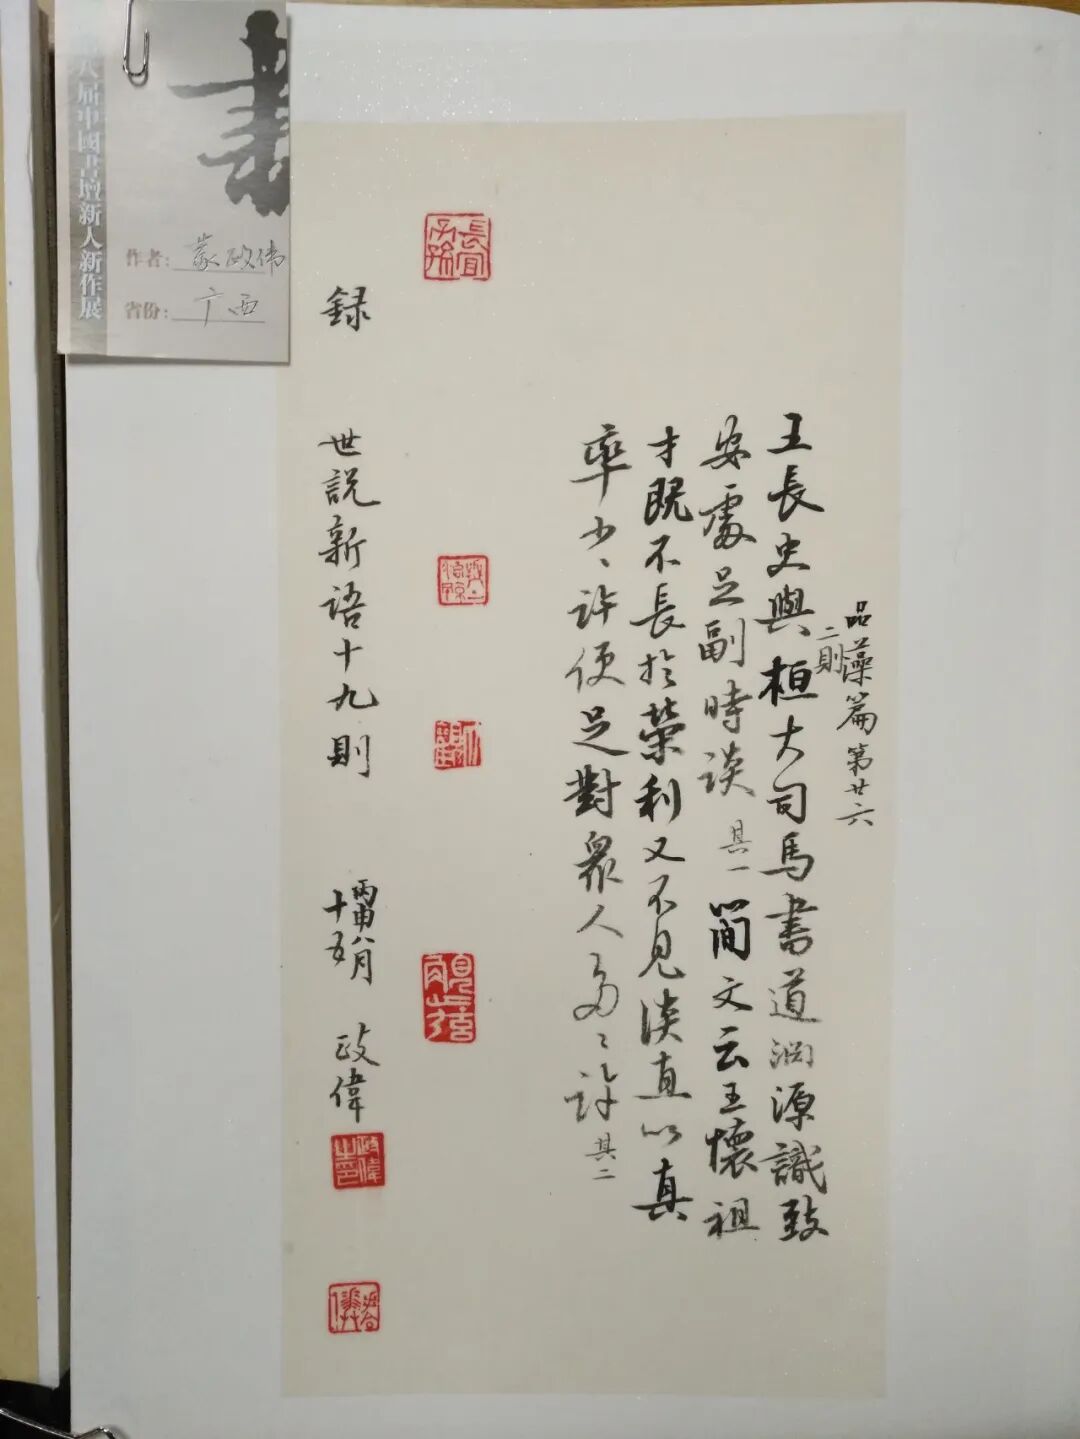 八届中國書壇新人新作展
作者：蒙政伟
省份：广西
品藻篇第廿六
二則
王長史與桓大司馬書道淵源識致
安處足副時談 其一 簡文云王懷祖
才既不長於榮利又不見淡直以真
率少ヽ許便足對衆人多ヽ許 其二
録 世説新语十九則 丙申八月十五 政偉
長宜子孫
政偉之印